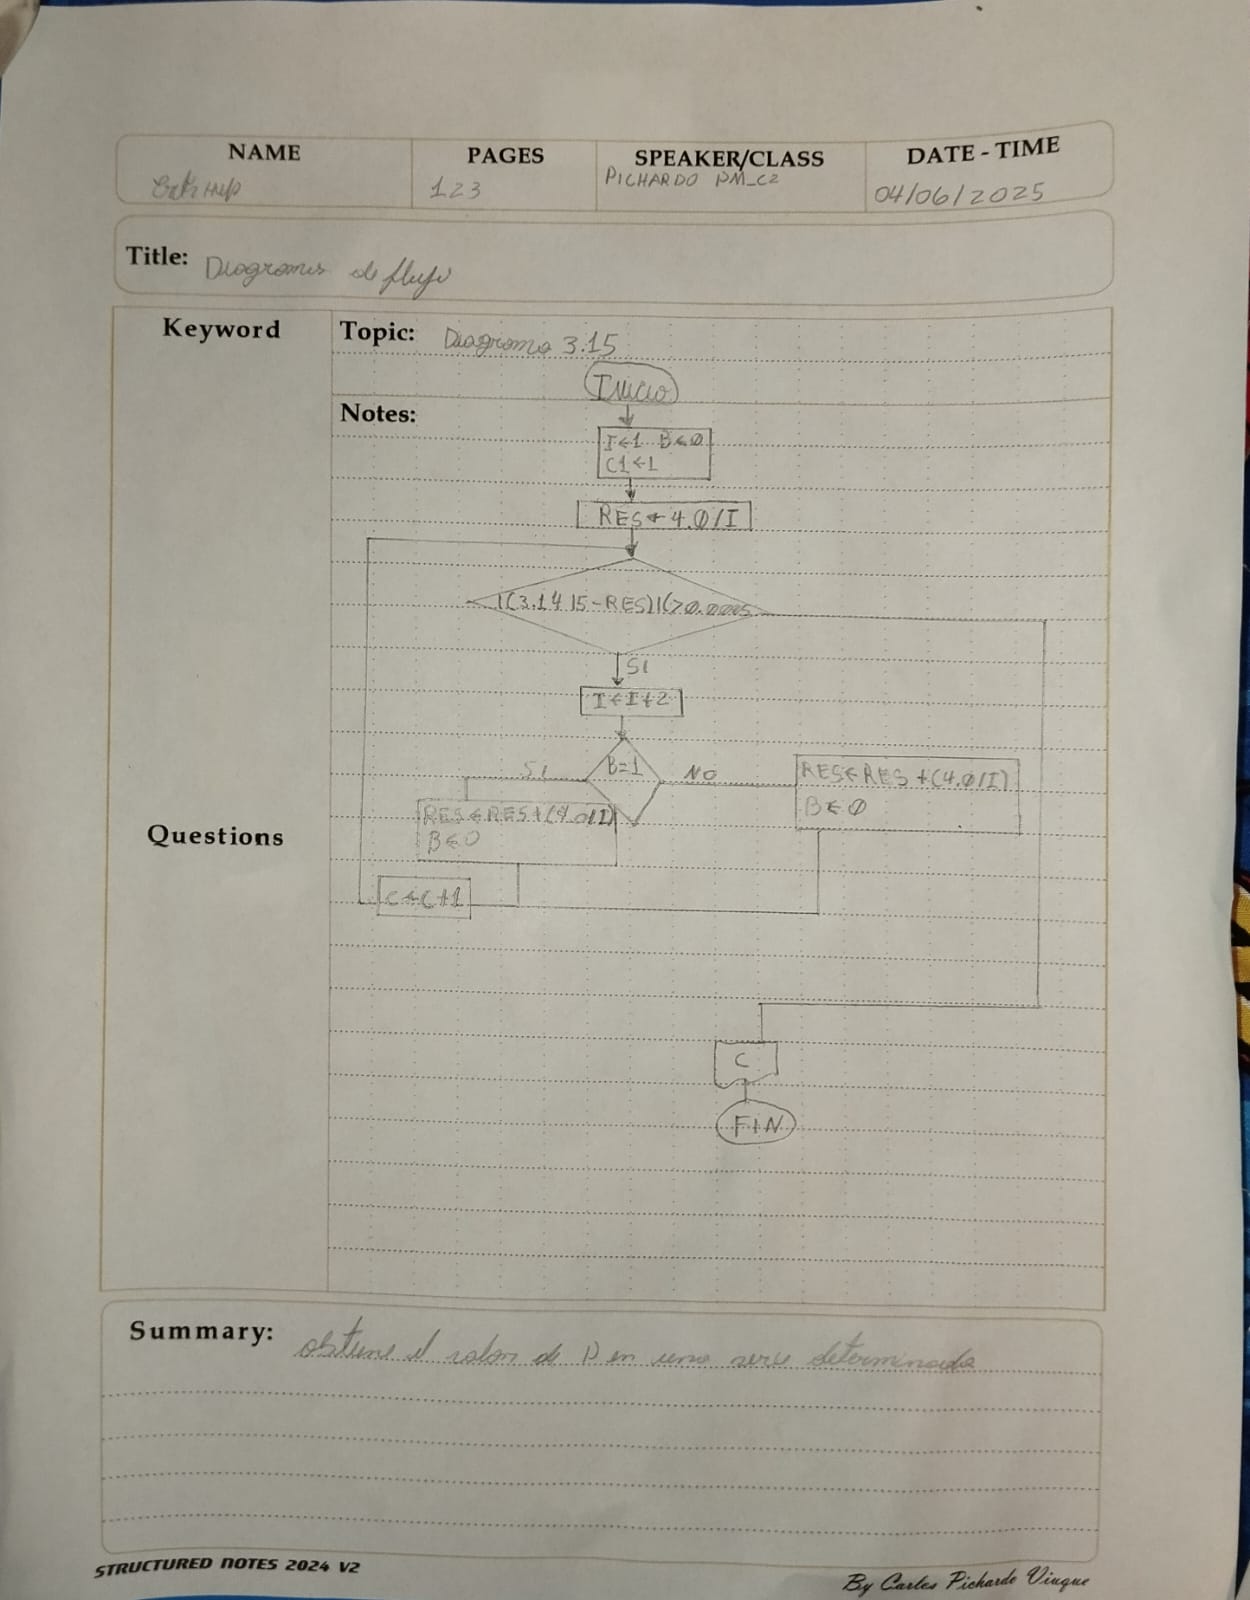 NAME
PAGES
SPEAKER/CLASS
DATE - TIME
123
PICHARDO PM_C2
04/06/2025
Title: Diagramas de flujo
Keyword
Topic: Diagrama 3.15
Inicio
Notes:
I←1 B←0
C1←1
RES←4.0/I
|(3.1415-RES)|(>0.0005
SI
I←I+2
B=1
SI
NO
RES←RES+(4.0/I)
B←0
RES←RES+(4.0/I)
B←0
Questions
C←C+1
C
FIN
Summary: obtiene el valor de P en una serie determinada
STRUCTURED NOTES 2024 V2
By Carlos Pichardo Viuque